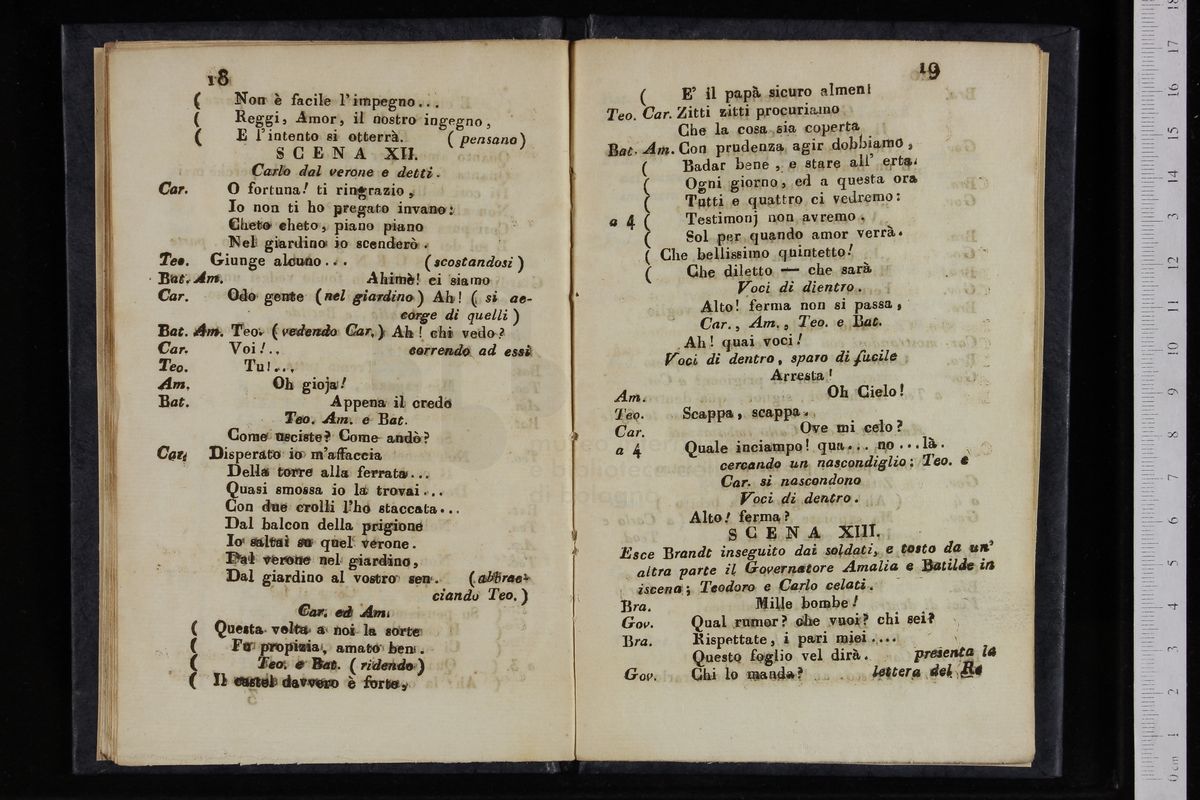 18
( Non è facile l'impegno...
( Reggi, Amor, il nostro ingegno,
( E l'intento si otterrà. ( pensano )
SCENA XII.
Carlo dal verone e detti.
Car. O fortuna! ti ringrazio,
Io non ti ho pregato invano:
Cheto cheto, piano piano
Nel giardino io scenderò.
Teo. Giunge alcuno... (scostandosi )
Bat. Am. Ahimè! ci siamo
Car. Odo gente (nel giardino) Ah! ( si ac-
corge di quelli )
Bat. Am. Teo. (vedendo Car.) Ah! chi vedo?
Car. Voi!.. correndo ad essi
Teo. Tu!...
Am. Oh gioja!
Bat. Appena il credo
Teo. Am. e Bat.
Come usciste? Come andò?
Car. Disperato io m'affaccia
Della torre alla ferrata...
Quasi smossa io la trovai...
Con due crolli l'hò staccata...
Dal balcon della prigione
Io saltai su quel verone.
Dal verone nel giardino,
Dal giardino al vostro sen. (abbrac-
ciando Teo.)
Car. ed Am.
( Questa volta a noi la sorte
( Fu propizia, amato ben.
( Teo. e Bat. (ridendo)
( Il castel davvero è forte,
5
19
( E' il papà sicuro almen!
Teo. Car. Zitti zitti procuriamo
Che la cosa sia coperta
Bat. Am. Con prudenza agir dobbiamo,
( Badar bene, e stare all' erta.
( Ogni giorno, ed a questa ora
( Tutti e quattro ci vedremo:
a 4 ( Testimonj non avremo.
( Sol per quando amor verrà.
( Che bellissimo quintetto!
( Che diletto — che sarà
Voci di dientro.
Alto! ferma non si passa,
Car., Am., Teo. e Bat.
Ah! quai voci!
Voci di dentro, sparo di fucile
Arresta!
Am. Oh Cielo!
Teo. Scappa, scappa.
Car. Ove mi celo?
a 4 Quale inciampo! qua... no...là.
cercando un nascondiglio: Teo. e
Car. si nascondono
Voci di dentro.
Alto! ferma?
SCENA XIII.
Esce Brandt inseguito dai soldati, e tosto da un'
altra parte il Governatore Amalia e Batilde in
iscena; Teodoro e Carlo celati.
Bra. Mille bombe!
Gov. Qual rumor? che vuoi? chi sei?
Bra. Rispettate, i pari miei....
Questo foglio vel dirà. presenta la
Gov. Chi lo manda? lettera del Re